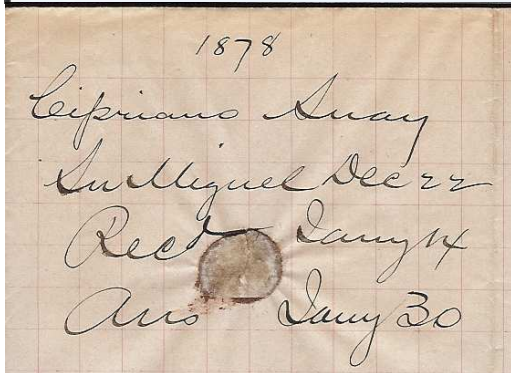 1878
Cipriano Anay
Sn Miguel Dec 22
Recd Jany 14
Ans Jany 30